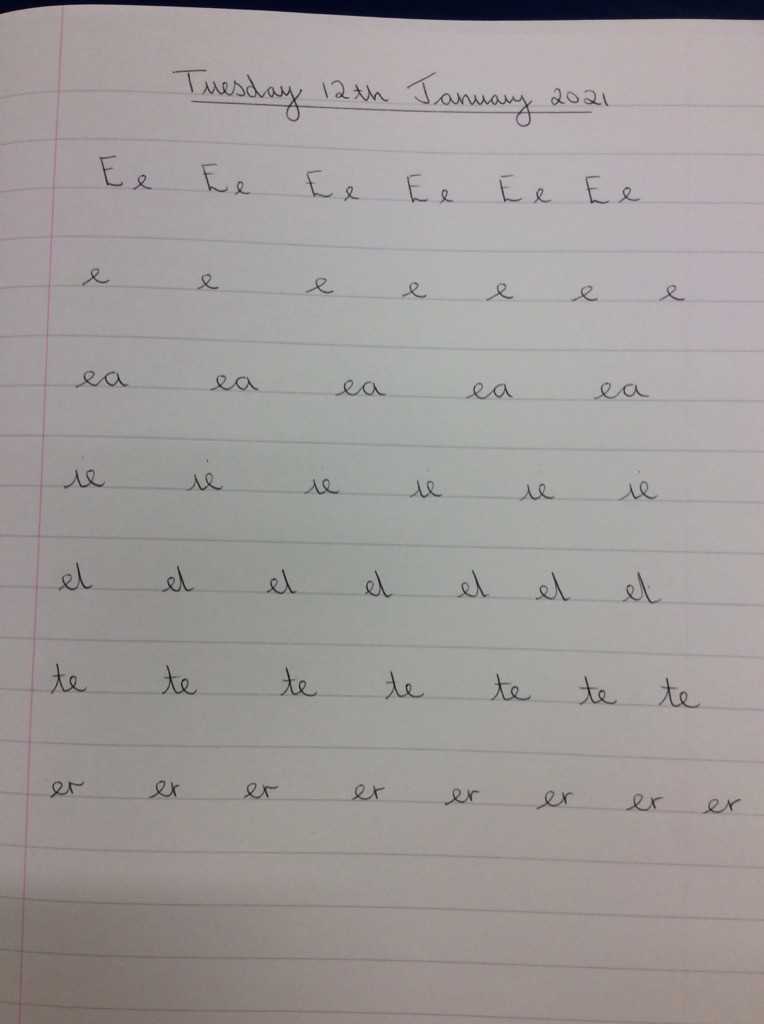 Tuesday 12th January 2021
E e E e E e E e E e E e
e e e e e e e
ea ea ea ea ea
ie ie ie ie ie ie
el el el el el el el
te te te te te te te
er er er er er er er er